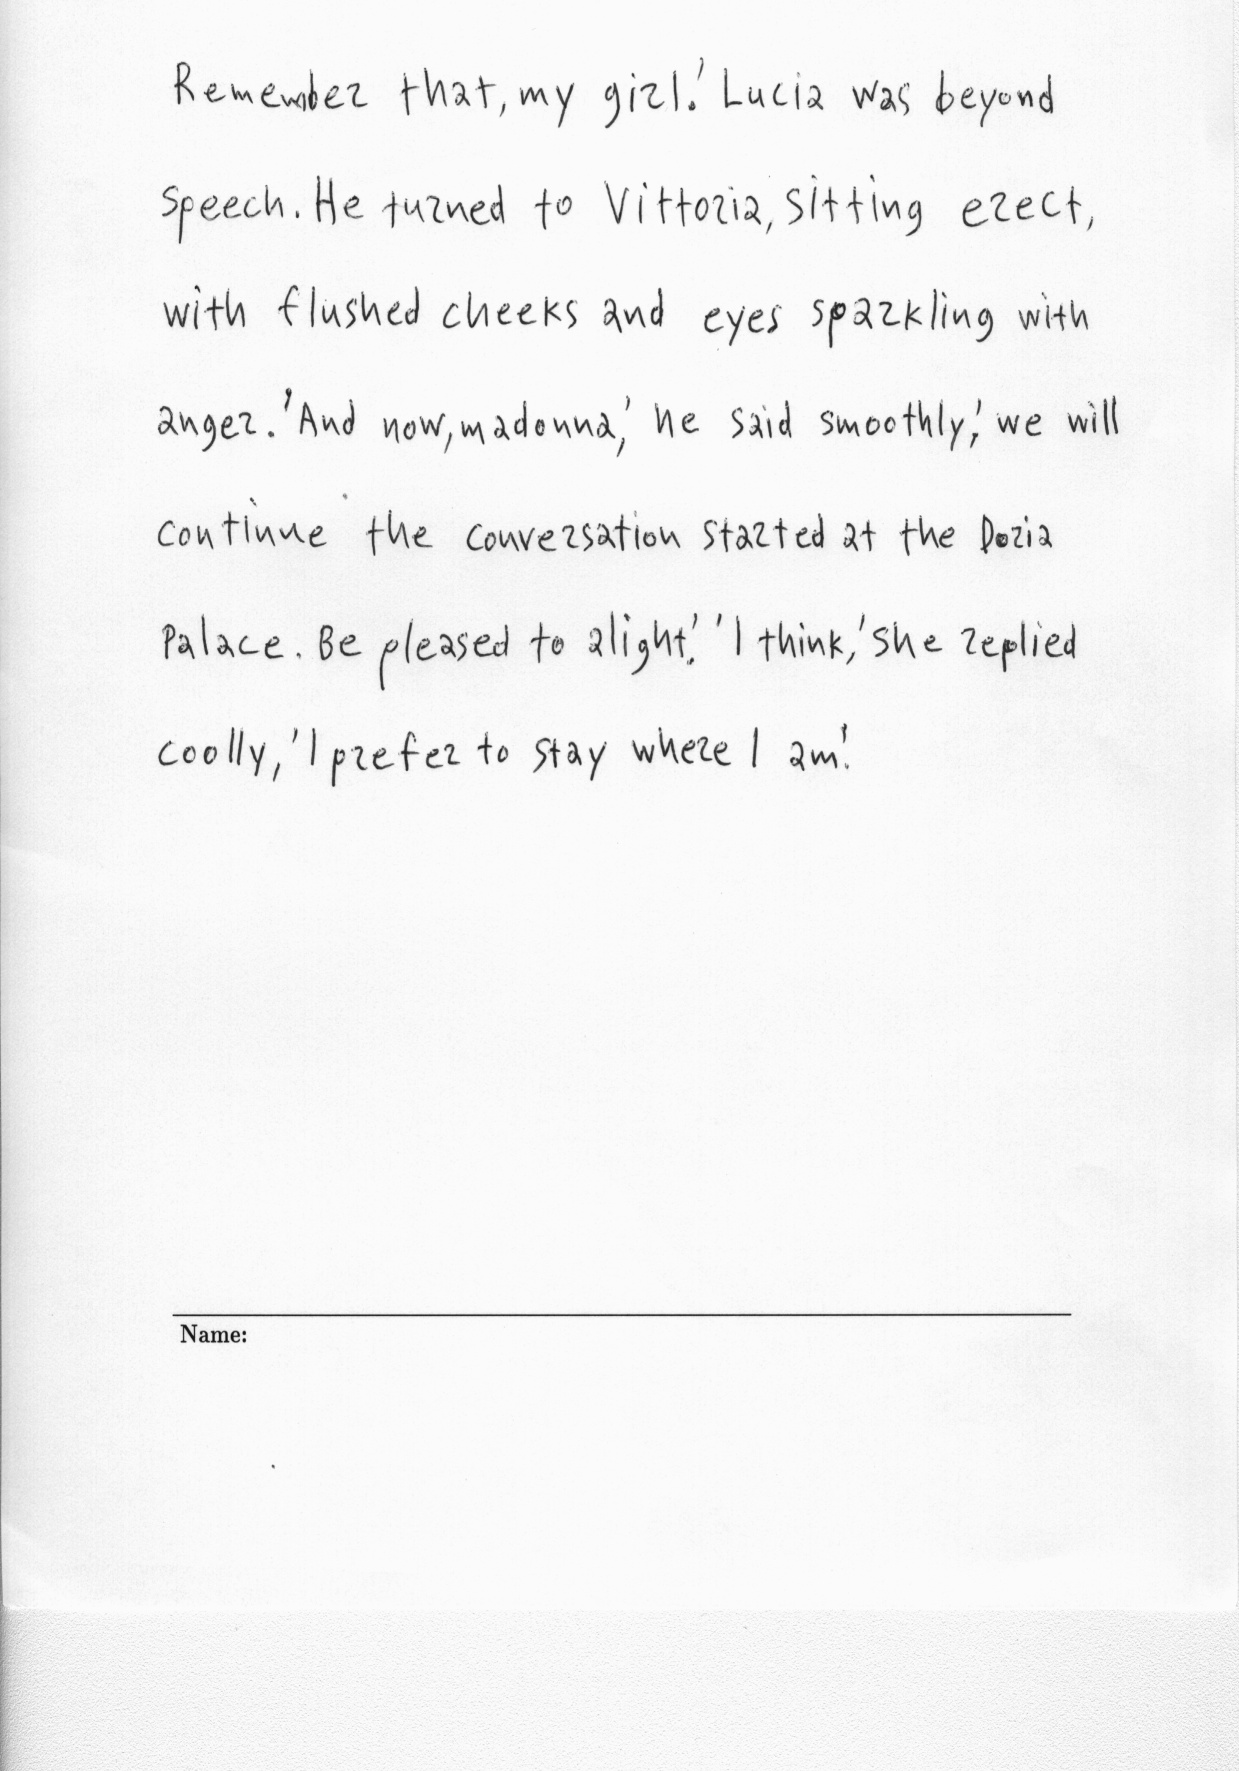 Remember that, my girl.' Lucia was beyond
speech. He turned to Vittoria, sitting erect,
with flushed cheeks and eyes sparkling with
anger. 'And now, madonna,' he said smoothly,' we will
continue the conversation started at the Doria
Palace. Be pleased to alight.' 'I think,' she replied
coolly, 'I prefer to stay where I am.'
Name: